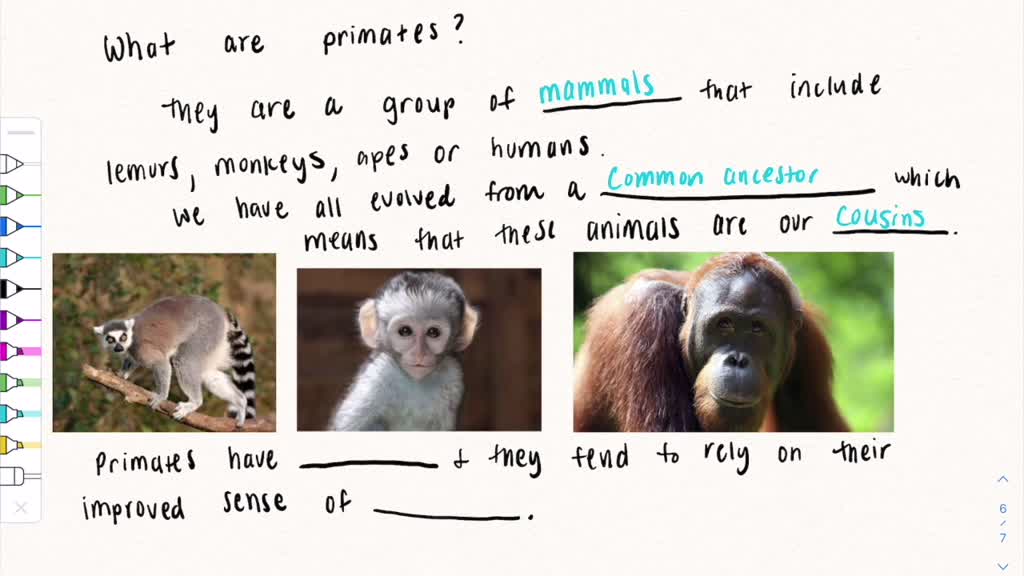 What are primates?
they are a group of mammals that include
lemurs, monkeys, apes or humans.
we have all evolved from a Common ancestor which
means that these animals are our cousins.
Primates have ________ & they tend to rely on their
improved sense of ________.
6
/
7